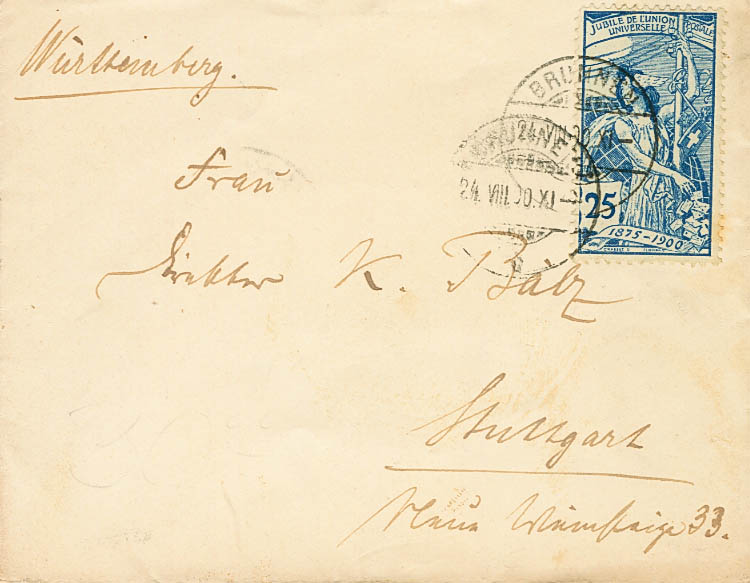 Württemberg.
JUBILE DE L'UNION POSTALE
UNIVERSELLE
BRUNNEN
24.VIII.00.XI
BRUNNEN
24.VIII.00.XI
25
1875-1900
Frau
Direktor K. Balz
Stuttgart
Neue Weinsteige 33.